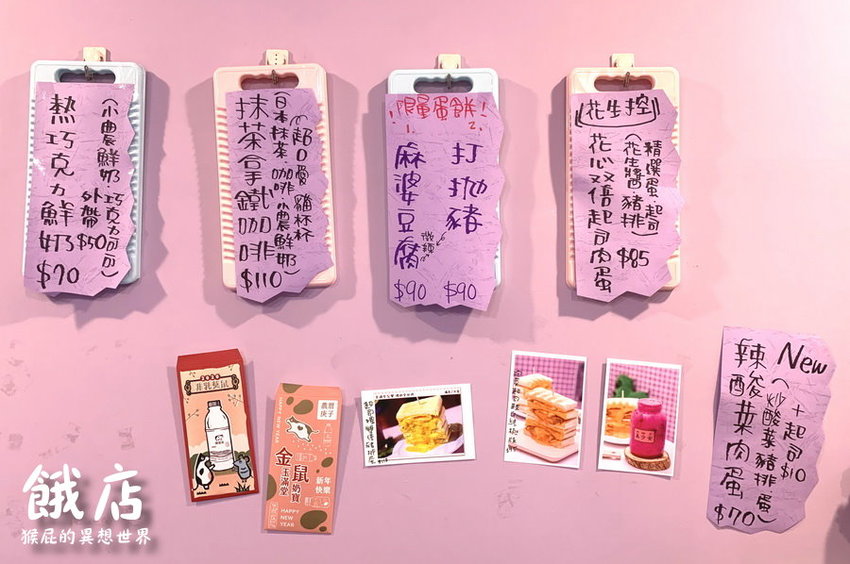 熱巧克力鮮奶
(小農鮮奶、巧克力可可)
外帶$50
$70
抹茶拿鐵咖啡
(日本抹茶、咖啡、小農鮮奶)
(超口愛貓杯杯
$110
限量蛋餅!
1.
麻婆豆腐
微辣
$90
2.
打拋豬
$90
花生控
花心双倍起司肉蛋
(花生醬、豬排)
精選蛋、起司
$85
New
辣酸菜肉蛋
(炒酸菜、豬排、蛋)
+起司$10
$70
2020
金鼠奶寶
玉滿堂
農曆
庚子
新年
快樂
HAPPY
NEW YEAR
餓店
猴屁的異想世界